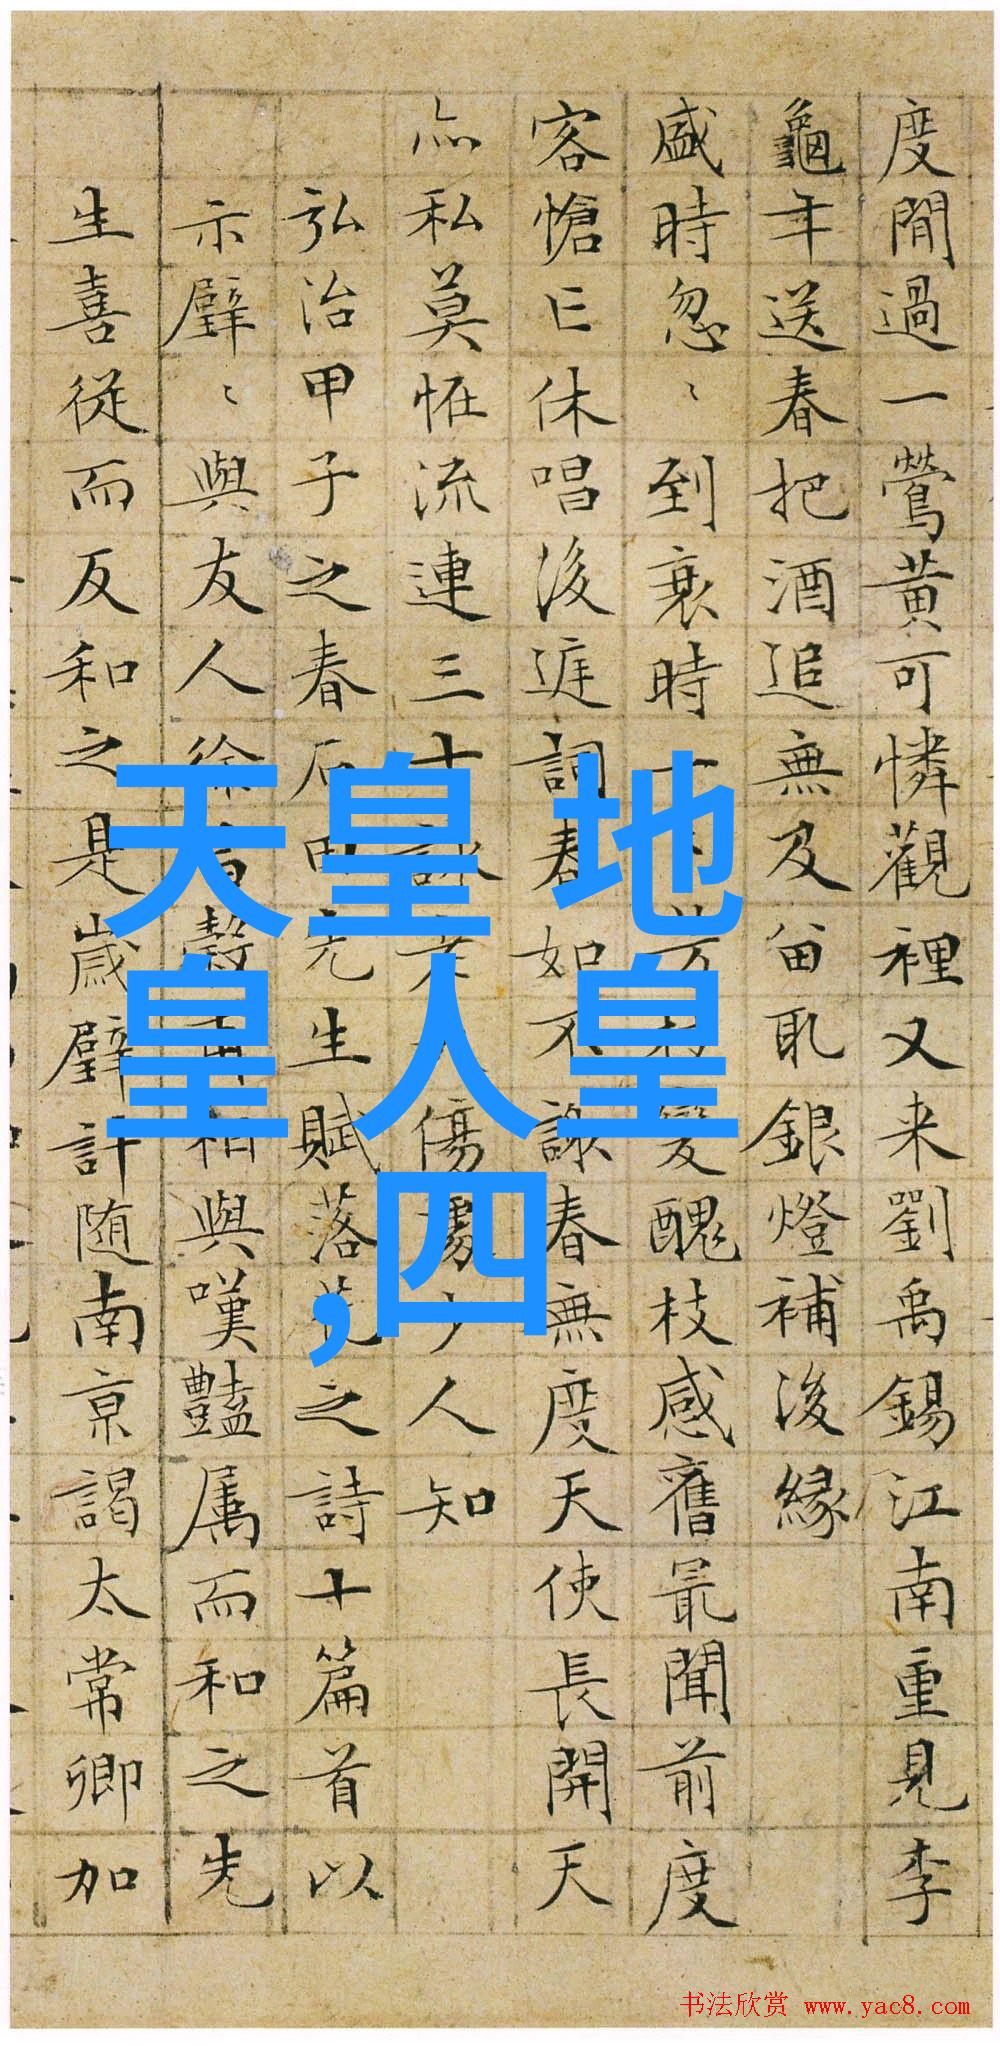 度閒過一鶯黃可憐觀裡又来劉禹錫江南重見李
龜年送春把酒追無及畄取銀燈補後緣
盛時忽〻到衰時變醜枝感舊最聞前度
客愴亡休唱後庭詞春如不詠春無度天使長開天
亦私莫怪流連三十詠傷處少人知
弘治甲子之春石田先生賦落花之詩十篇首以
示璧〻與友人徐昌穀甫相與嘆豔属而和之先
生喜從而反和之是歲璧計随南京謁太常卿加
天皇 地
皇 人皇
,四
书法欣赏 www.yac8.com